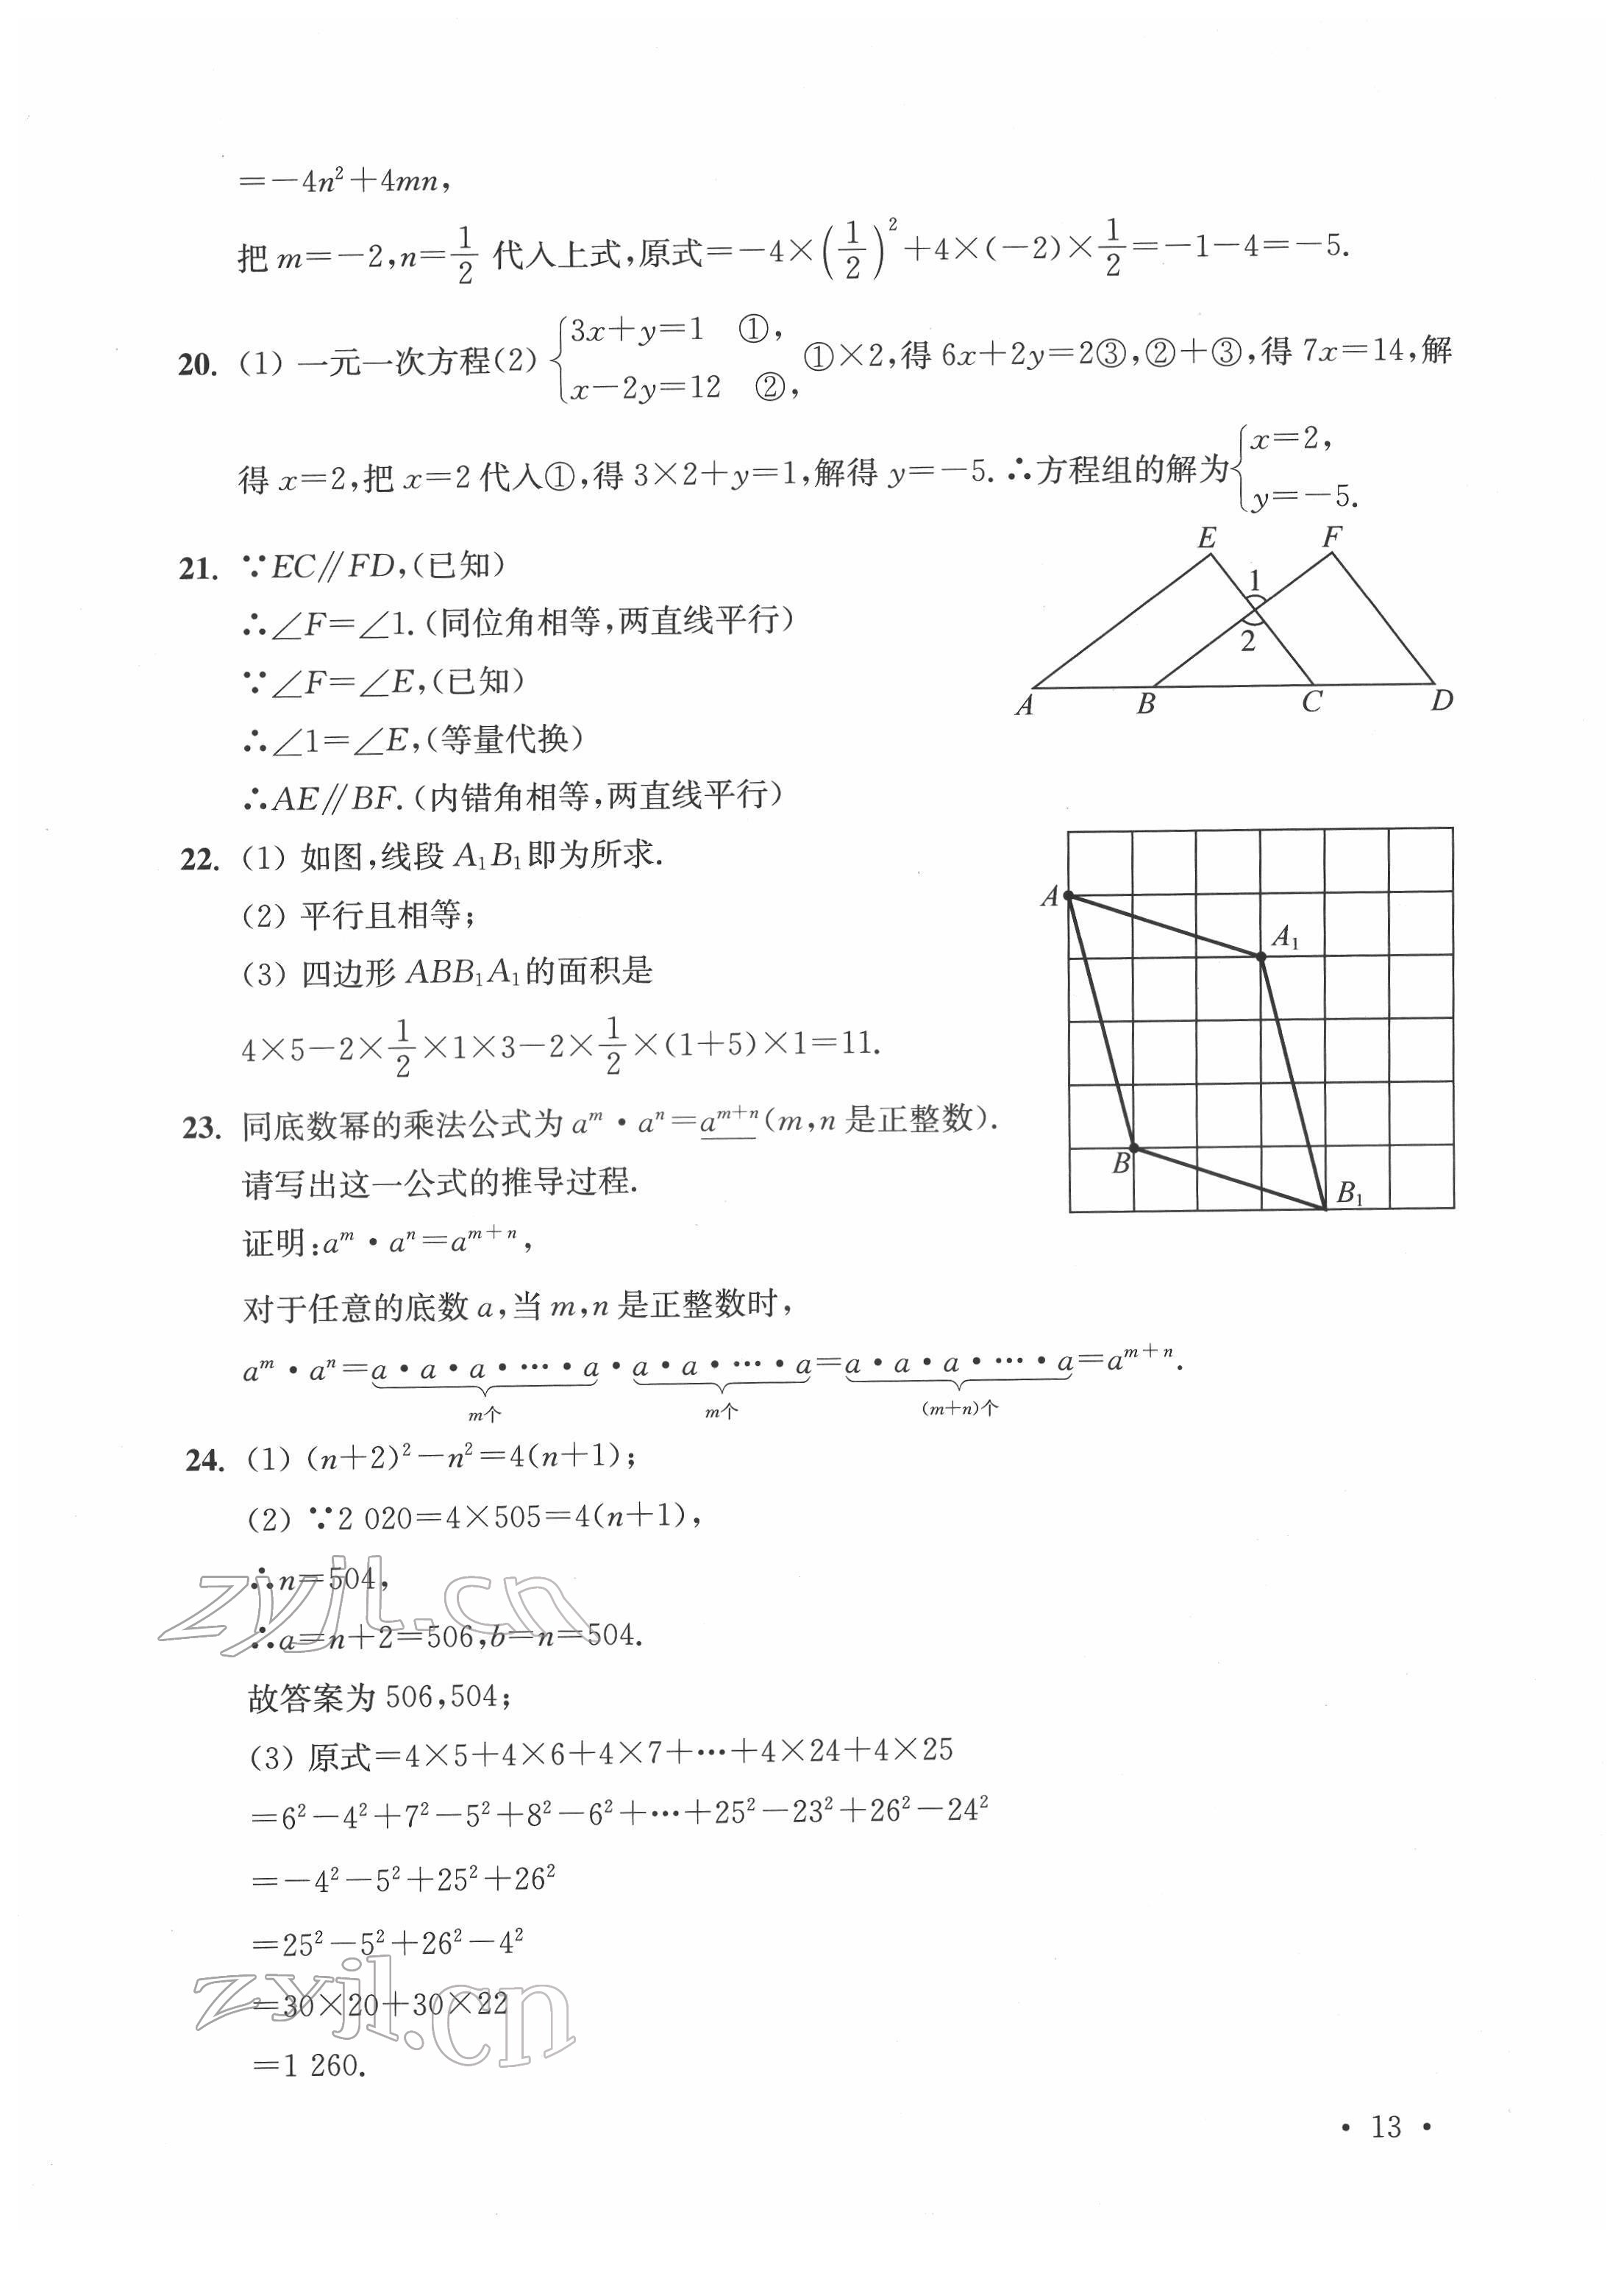 =-4n²+4mn,
把 m=-2,n=1/2 代入上式,原式=-4×(1/2)²+4×(-2)×1/2=-1-4=-5.
20. (1) 一元一次方程(2) {3x+y=1 ①, x-2y=12 ②, ①×2,得 6x+2y=2③,②+③,得 7x=14,解
得 x=2,把 x=2 代入①,得 3×2+y=1,解得 y=-5. ∴方程组的解为{x=2, y=-5.
E F
1
2
A B C D
21. ∵EC∥FD,(已知)
∴∠F=∠1.(同位角相等,两直线平行)
∵∠F=∠E,(已知)
∴∠1=∠E,(等量代换)
∴AE∥BF.(内错角相等,两直线平行)
22. (1) 如图,线段 A₁B₁即为所求.
(2) 平行且相等;
(3) 四边形 ABB₁A₁的面积是
4×5-2×1/2×1×3-2×1/2×(1+5)×1=11.
A
A₁
B
B₁
23. 同底数幂的乘法公式为 aᵐ·aⁿ=aᵐ⁺ⁿ(m,n 是正整数).
请写出这一公式的推导过程.
证明:aᵐ·aⁿ=aᵐ⁺ⁿ,
对于任意的底数 a,当 m,n 是正整数时,
aᵐ·aⁿ=a·a·a·…·a·a·a·…·a=a·a·a·…·a=aᵐ⁺ⁿ.
m个 m个 (m+n)个
24. (1) (n+2)²-n²=4(n+1);
(2) ∵2 020=4×505=4(n+1),
∴n=504,
∴a=n+2=506,b=n=504.
zyjl.cn
故答案为 506,504;
(3) 原式=4×5+4×6+4×7+…+4×24+4×25
=6²-4²+7²-5²+8²-6²+…+25²-23²+26²-24²
=-4²-5²+25²+26²
=25²-5²+26²-4²
=30×20+30×22
zyjl.cn
=1 260.
· 13 ·